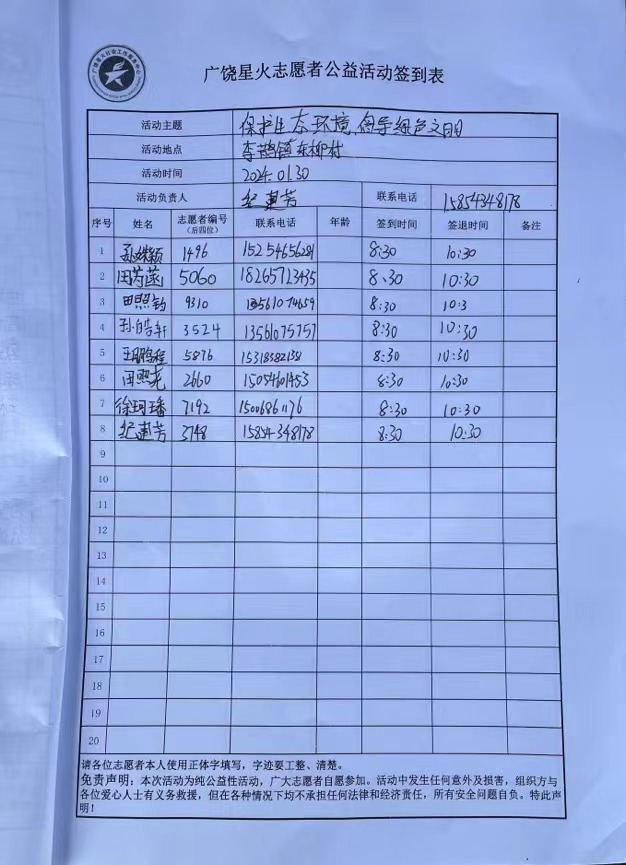 广饶星火志愿者公益活动签到表
活动主题 保护生态环境,倡导绿色文明
活动地点 李鹊镇东柳村
活动时间 2024.01.30
活动负责人 纪建芳 联系电话 15854348178
序号 姓名 志愿者编号(后四位) 联系电话 年龄 签到时间 签退时间 备注
1 1496 15254656281 8:30 10:30
2 田芮菡 5060 18265723435 8:30 10:30
3 田照钧 9310 13561074659 8:30 10:3
4 孙皓轩 3524 13561075757 8:30 10:30
5 王鹏程 5876 15318382138 8:30 10:30
6 田照尧 2660 15054601453 8:30 10:30
7 徐珂璠 7192 15006861176 8:30 10:30
8 纪建芳 3748 15854348178 8:30 10:30
9
10
11
12
13
14
15
16
17
18
19
20
请各位志愿者本人使用正体字填写,字迹要工整、清楚。
免责声明:本次活动为纯公益性活动,广大志愿者自愿参加。活动中发生任何意外及损害,组织方与
各位爱心人士有义务救援,但在各种情况下均不承担任何法律和经济责任,所有安全问题自负。特此声
明!